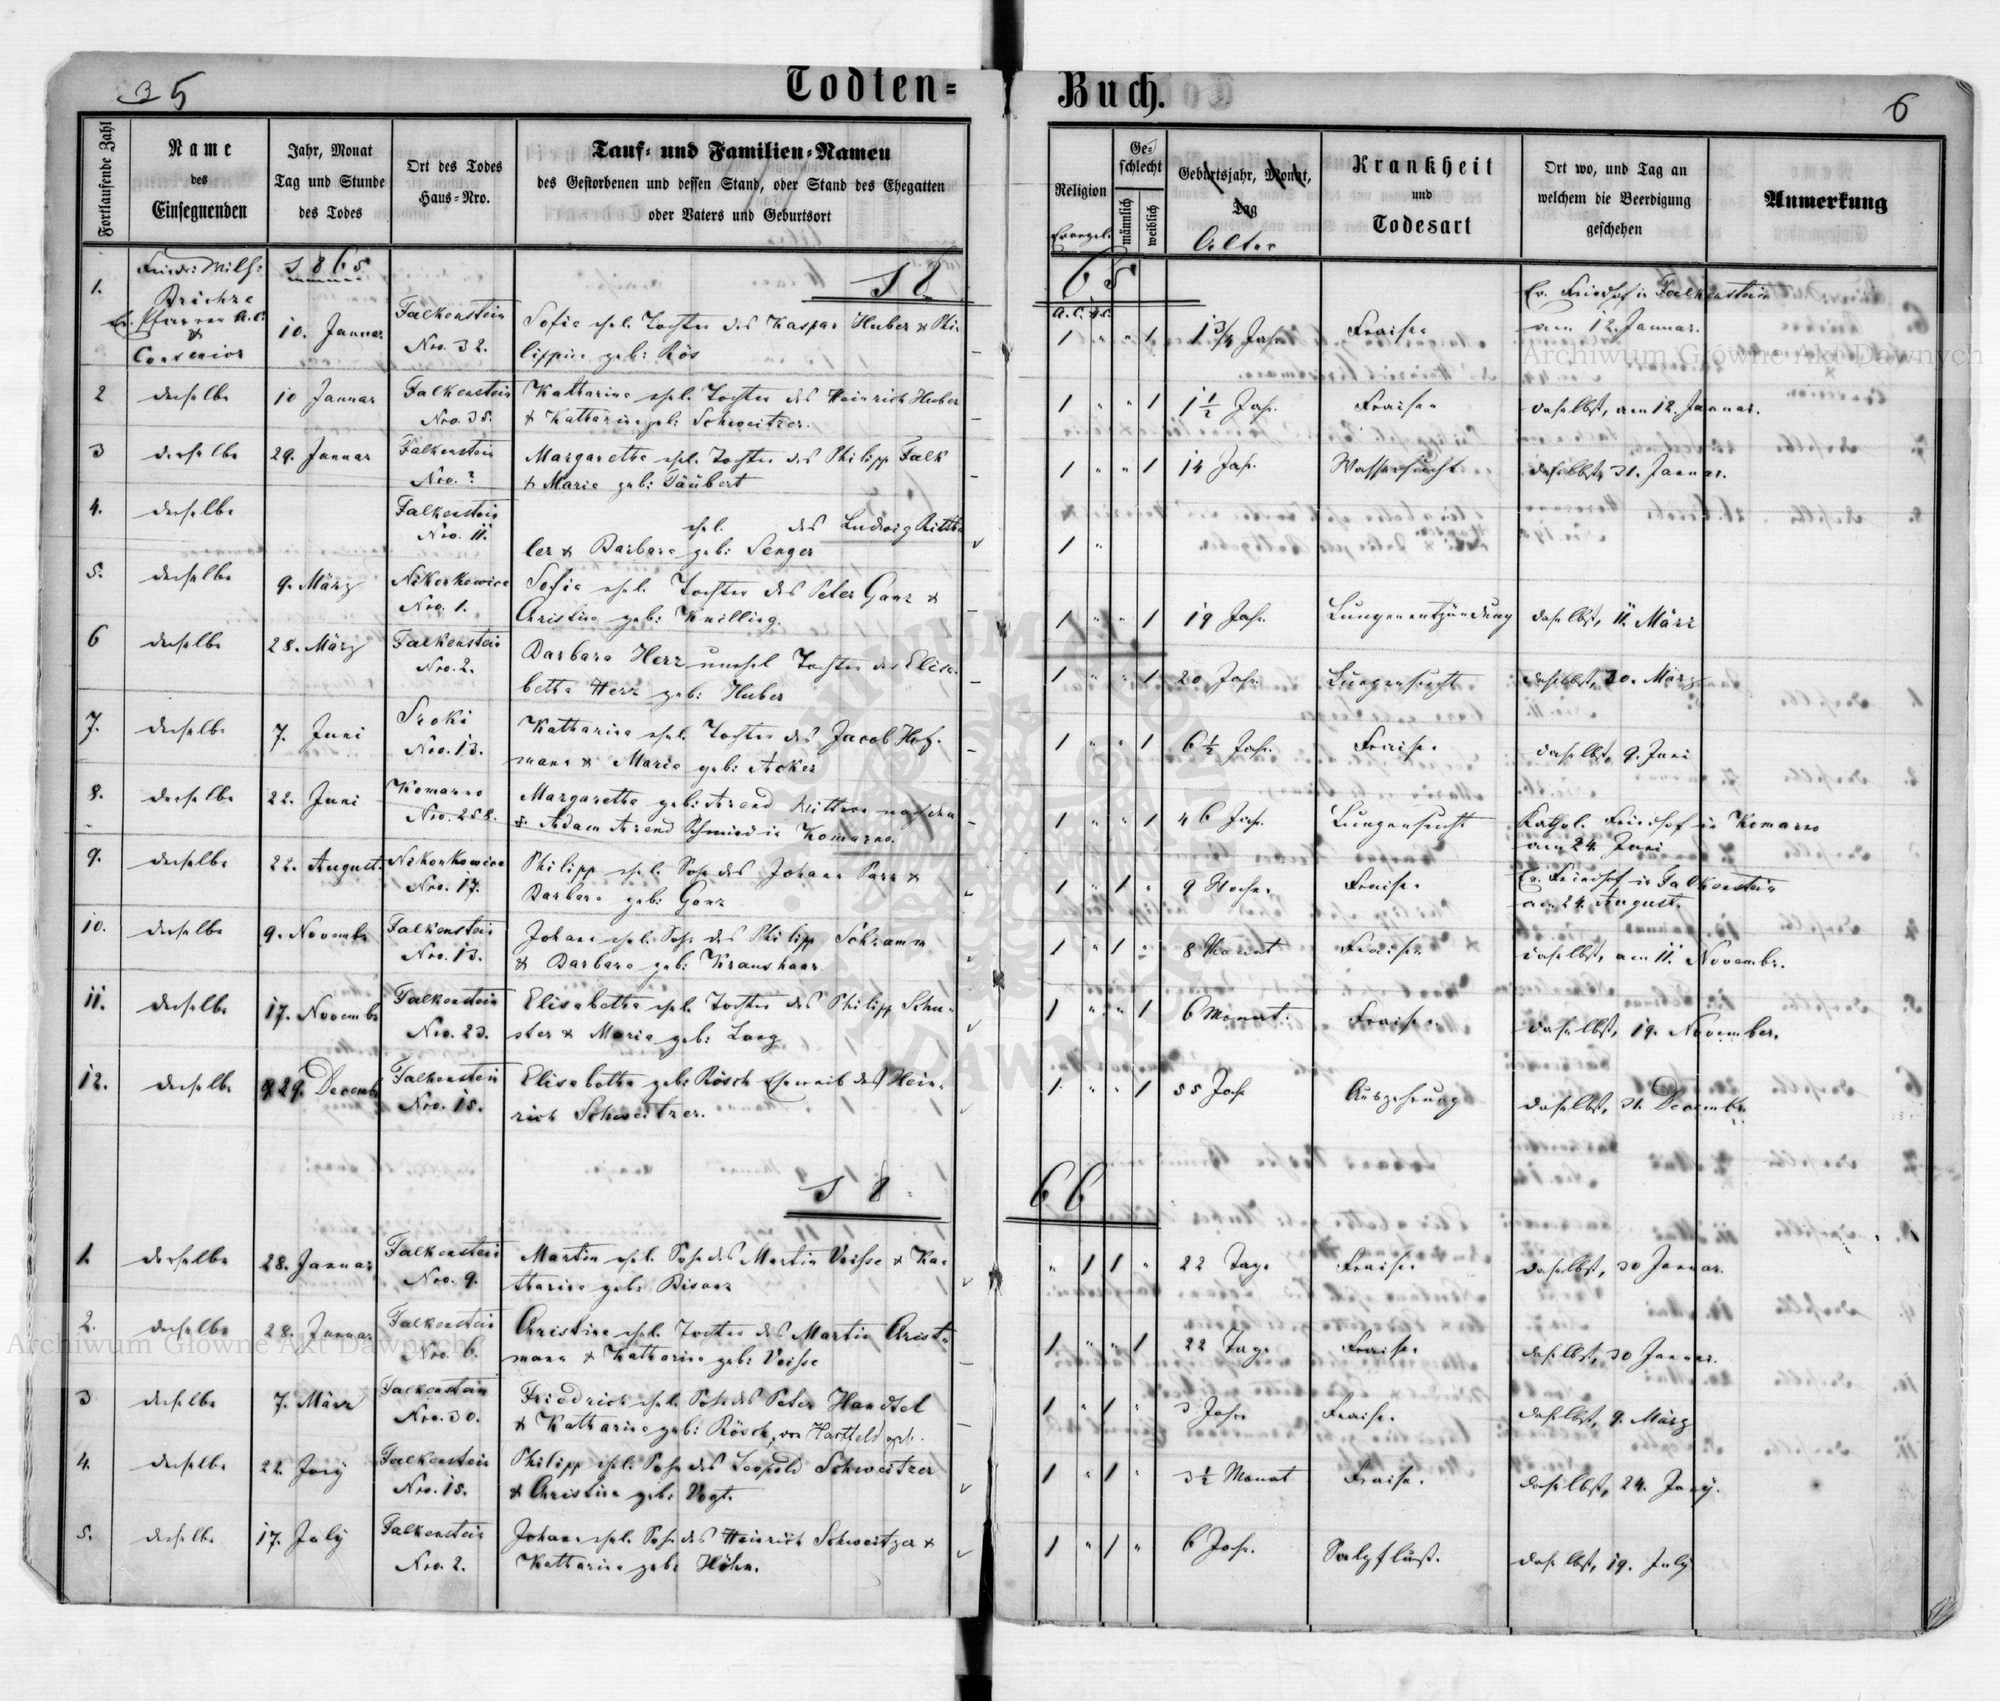 35
Todten-
Buch.
6
Fortlaufende Zahl
Name
des
Einsegnenden
Jahr, Monat
Tag und Stunde
des Todes
Ort des Todes
Haus-Nro.
Tauf- und Familien-Namen
des Gestorbenen und dessen Stand, oder Stand des Ehegatten
oder Vaters und Geburtsort
Religion
Evangel.
Ge-
schlecht
männlich
weiblich
Geburtsjahr, Monat,
Tag
Alter
Krankheit
und
Todesart
Ort wo, und Tag an
welchem die Beerdigung
geschehen
Anmerkung
1865
18
65
A.C. H.C.
1. Friedr: Wilh:
Ev. Pfarrer A.C.
&
Consenior
10. Januar
Falkenstein
Nro. 32.
Sofie ehel. Tochter des Kaspar Huber & Phi-
lippine geb: Rös
1 " " 1 1 3/4 Jahr Fraisen
Ev. Friedhof in Falkenstein
am 12. Januar.
2 derselbe 10 Januar Falkenstein
Nro. 35.
Katharina ehel. Tochter des Heinrich Huber
& Katharina geb: Schweitzer.
1 " " 1 1 1/2 Jahr. Fraisen daselbst, am 12. Januar.
3 derselbe 29. Januar Falkenstein
Nro. ?
Margaretha ehel. Tochter des Philipp Falk
& Maria geb: Täubert
1 " " 1 14 Jahr. Wassersucht daselbst, 31. Januar.
4. derselbe Falkenstein
Nro. 11.
ehel. des Ludwig Rittha-
ler & Barbara geb: Senger
1 "
5. derselbe 9. März Nikonkowice
Nro. 1.
Sofie ehel. Tochter des Peter Ganz &
Christine geb: Knilling.
1 " " 1 19 Jahr. Lungenentzündung daselbst, 11. März
6 derselbe 28. März Falkenstein
Nro. 2.
Barbara Herz unehel Tochter der Elisa-
betha Herz geb: Huber
1 " " 1 20 Jahr. Lungensucht daselbst, 30. März
7. derselbe 7. Juni Sroki
Nro. 13.
Katharina ehel. Tochter des Jacob Hof-
mann & Maria geb: Acker
1 " " 1 6 1/2 Jahr. Fraisen daselbst, 9. Juni
8. derselbe 22. Juni Komarno
Nro. 258.
Margaretha geb: Arend Wittwe nach dem
& Adam Arend Schmied in Komarno.
1 " " 1 46 Jahr. Lungensucht Kathol. Friedhof in Komarno
am 24. Juni
9. derselbe 22. August. Nikonkowice
Nro. 17.
Philipp ehel. Sohn des Johann Parr &
Barbara geb: Ganz
1 " 1 " 9 Wochen Fraisen Ev. Friedhof in Falkenstein
am 24. August.
10. derselbe 9. Novembr Falkenstein
Nro. 13.
Johann ehel. Sohn des Philipp Schramm
& Barbara geb: Kraushaar
1 " 1 " 8 Monat Fraisen daselbst, am 11. Novembr.
11. derselbe 17. Novembr Falkenstein
Nro. 23.
Elisabetha ehel. Tochter des Philipp Schu-
ster & Maria geb: Lang
1 " " 1 6 Monat. Fraisen. daselbst, 19. November.
12. derselbe 29. Decembr Falkenstein
Nro. 15.
Elisabetha geb: Rösch Eheweib des Hein-
rich Schweitzer.
1 " " 1 55 Jahr Auszehrung daselbst, 31. Decembr.
18
66
1. derselbe 28. Januar Falkenstein
Nro. 9.
Martin ehel. Sohn des Martin Veisse & Ka-
tharina geb: Bisanz
" 1 1 " 22 Tage Fraisen daselbst, 30 Januar.
2. derselbe 28. Januar Falkenstein
Nro. 6.
Christina ehel. Tochter des Martin Christ-
mann & Katharina geb: Veisse
1 " " 1 22 Tage Fraisen daselbst, 30 Januar.
3 derselbe 7. März Falkenstein
Nro. 30.
Friedrich ehel. Sohn des Peter Handtel
& Katharina geb: Rösch, von Hartfeld
1 " 1 " 3 Jahre Fraisen. daselbst, 9. März
4. derselbe 22. Juny Falkenstein
Nro. 15.
Philipp ehel. Sohn des Leopold Schweitzer
& Christina geb: Vogt.
1 " 1 " 3 1/2 Monat Fraisen. daselbst, 24. Juny.
5. derselbe 17. July Falkenstein
Nro. 2.
Johann ehel. Sohn des Heinrich Schweitzer &
Katharina geb: Höhn.
1 " 1 " 6 Jahr. Salzfluß. daselbst, 19. July
Archiwum Główne Akt Dawnych
Archiwum Główne Akt Dawnych